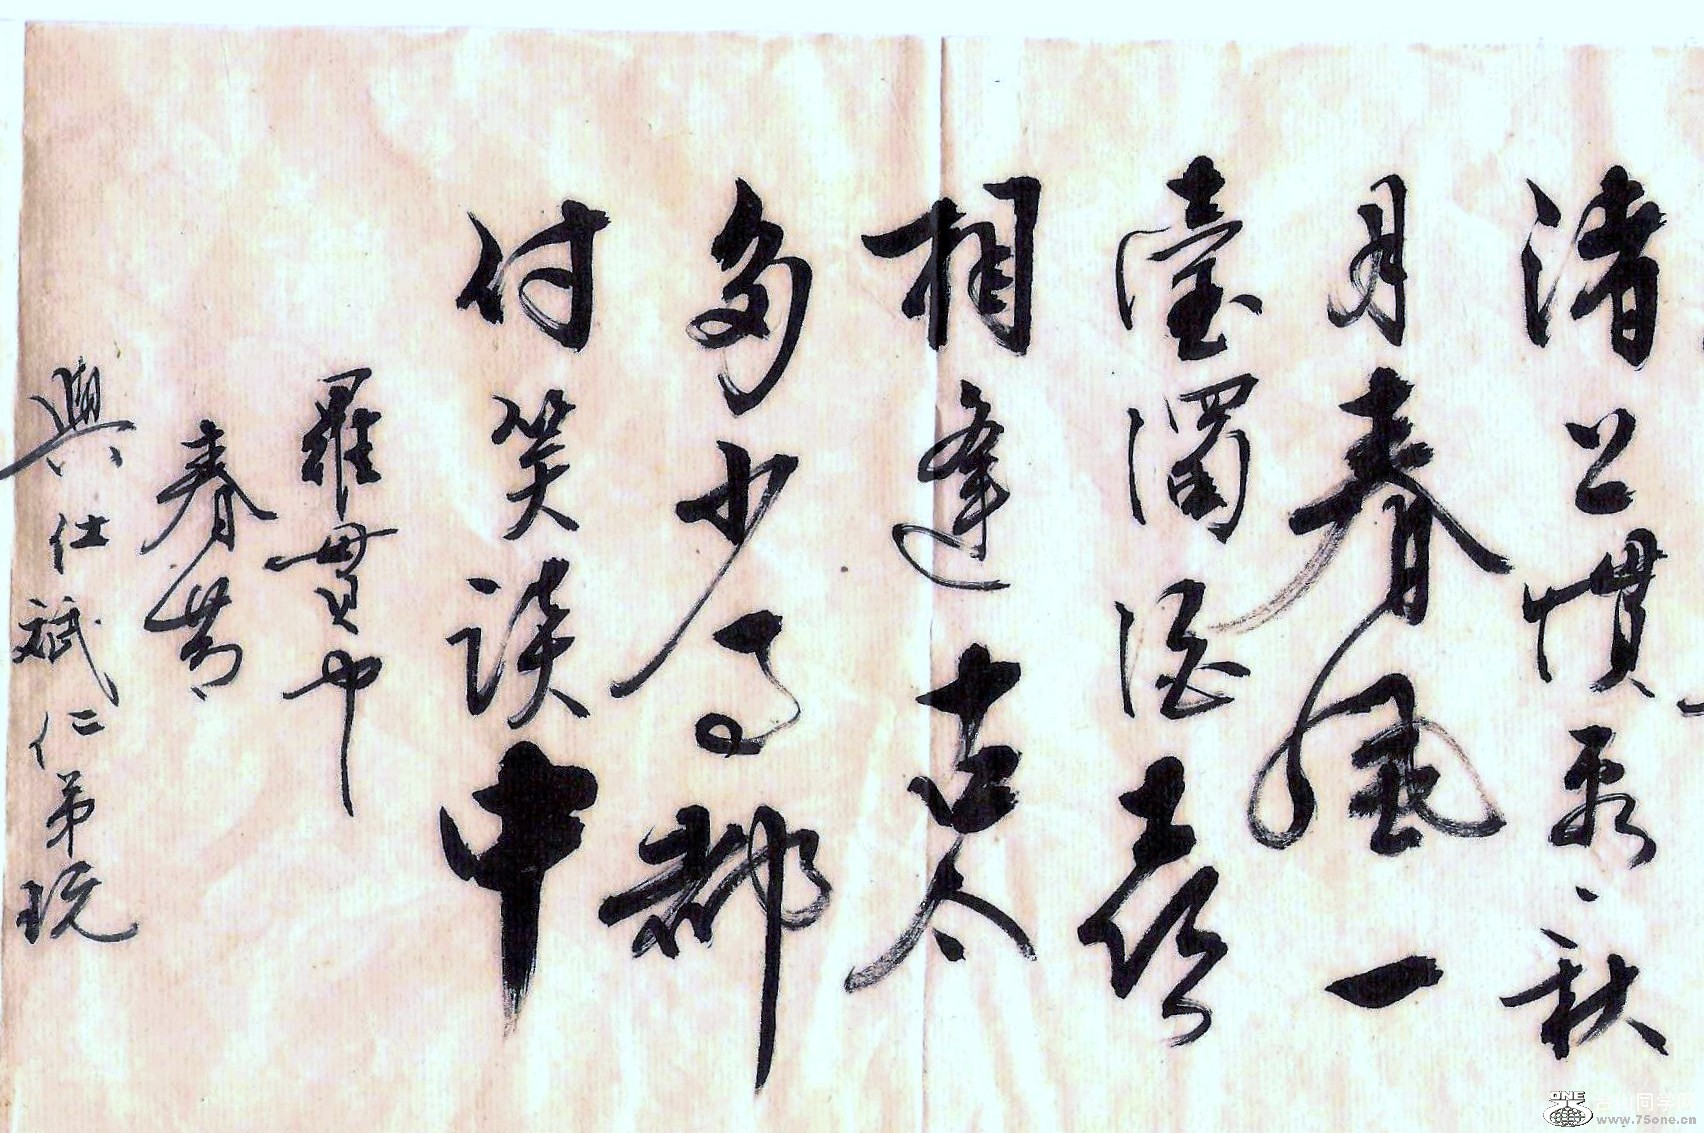 渚上慣看秋
月春風一
壺濁酒喜
相逢古今
多少事都
付笑談中
羅貫中
春
與仕斌仁弟玩
ONE
同学网
www.75one.cn